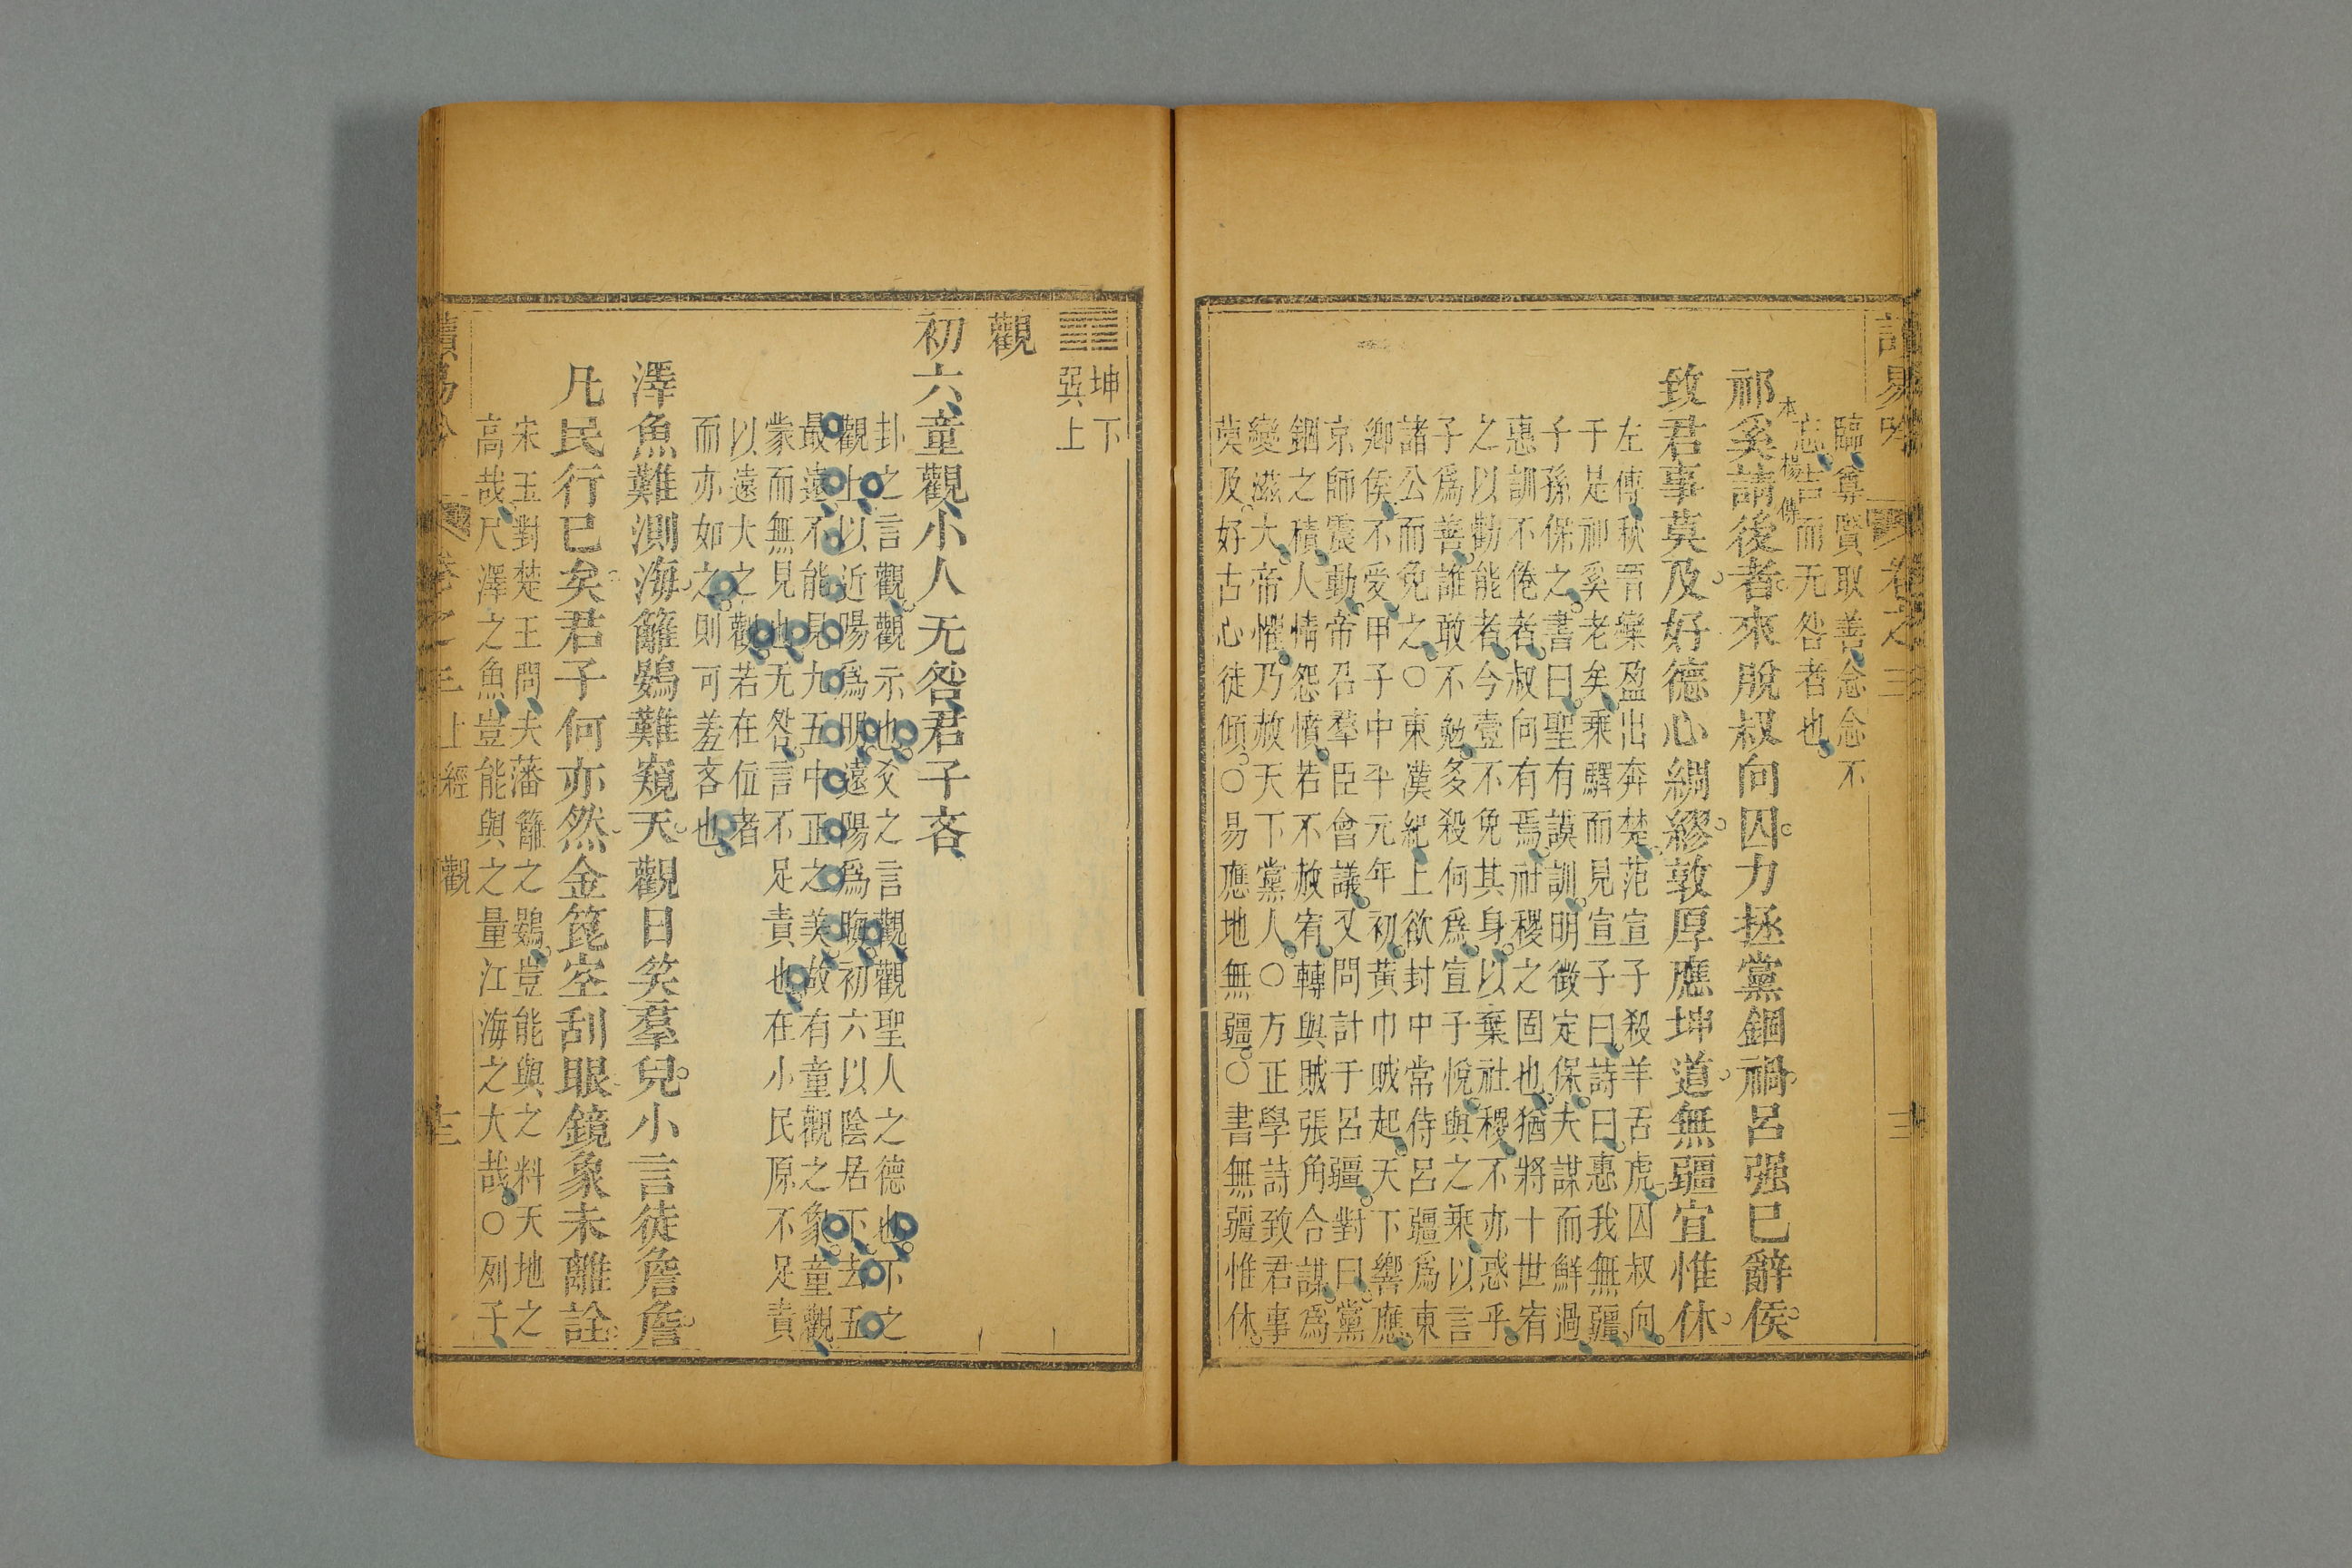 讀易吟 卷之三
臨尊賢取善念念不
忘吉而无咎者也
本 楊傳
祁奚請後者來脫叔向囚力拯黨錮禍呂强已辭侯
致君事莫及好德心綢繆敦厚應坤道無疆宜惟休
左傳秋晉欒盈出奔楚范宣子殺羊舌虎囚叔向
于是祁奚老矣乘驛而見宣子曰詩曰惠我無疆
子孫保之書曰聖有謨訓明徵定保夫謀而鮮過
惠訓不倦者叔向有焉社稷之固也猶將十世宥
之以勸能者今壹不免其身以棄社稷不亦惑乎
子爲善誰敢不勉多殺何爲宣子悅與之乘以言
諸公而免之○東漢紀上欲封中常侍呂疆爲東
卿侯不愛甲子中平元年初黄巾賊起天下響應
京師震動帝召羣臣會議又問計于呂疆對曰黨
錮之積人情怨憤若不赦宥轉與賊張角合謀爲
變滋大帝懼乃赦天下黨人○方正學詩致君事
莫及好古心徒傾○易應地無疆○書無疆惟休
坤下
巽上
觀
初六童觀小人无咎君子吝
卦之言觀觀示也爻之言觀觀聖人之德也下之
觀上以近陽爲明遠陽爲晦初六以陰居下去五
最遠不能見九五中正之美故有童觀之象童觀
蒙而無見也无咎言不足責也在小民原不足責
以遠大之觀若在位者
而亦如之則可羞吝也
澤魚難測海籬鷃難窺天觀日笑羣兒小言徒詹詹
凡民行已矣君子何亦然金箆空刮眼鏡象未離詮
宋玉對楚王問夫藩籬之鷃豈能與之料天地之
高哉尺澤之魚豈能與之量江海之大哉○列子
讀易吟 卷之三 上經 觀